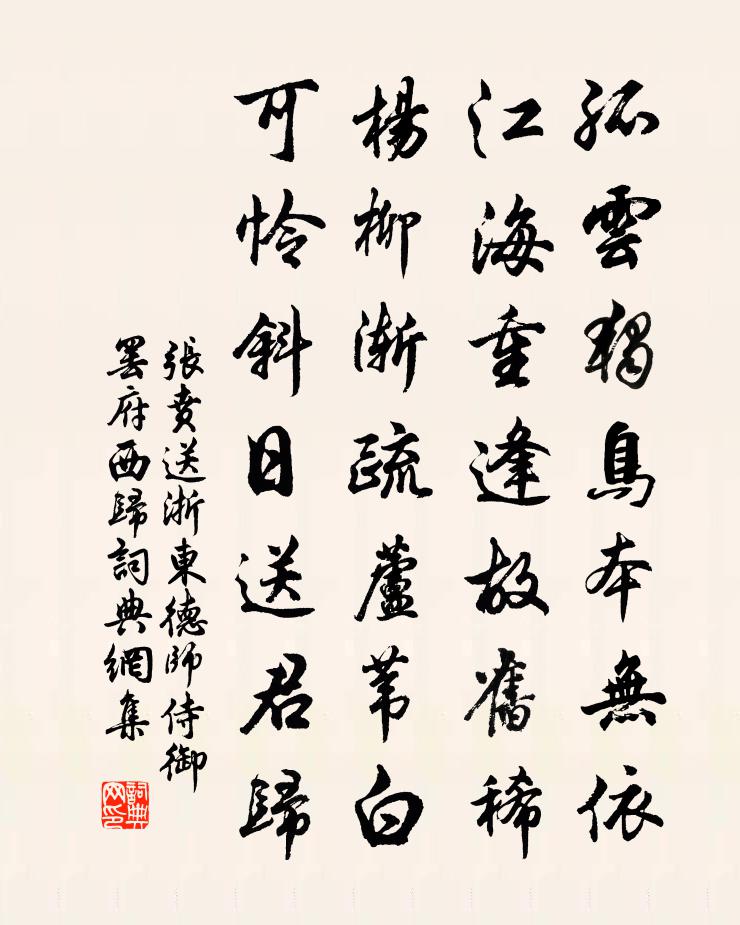 孤雲獨鳥本無依
江海重逢故舊稀
楊柳漸疏蘆葦白
可憐斜日送君歸
張賁送浙東德師侍御
罷府西歸詞典網集
詞典网印